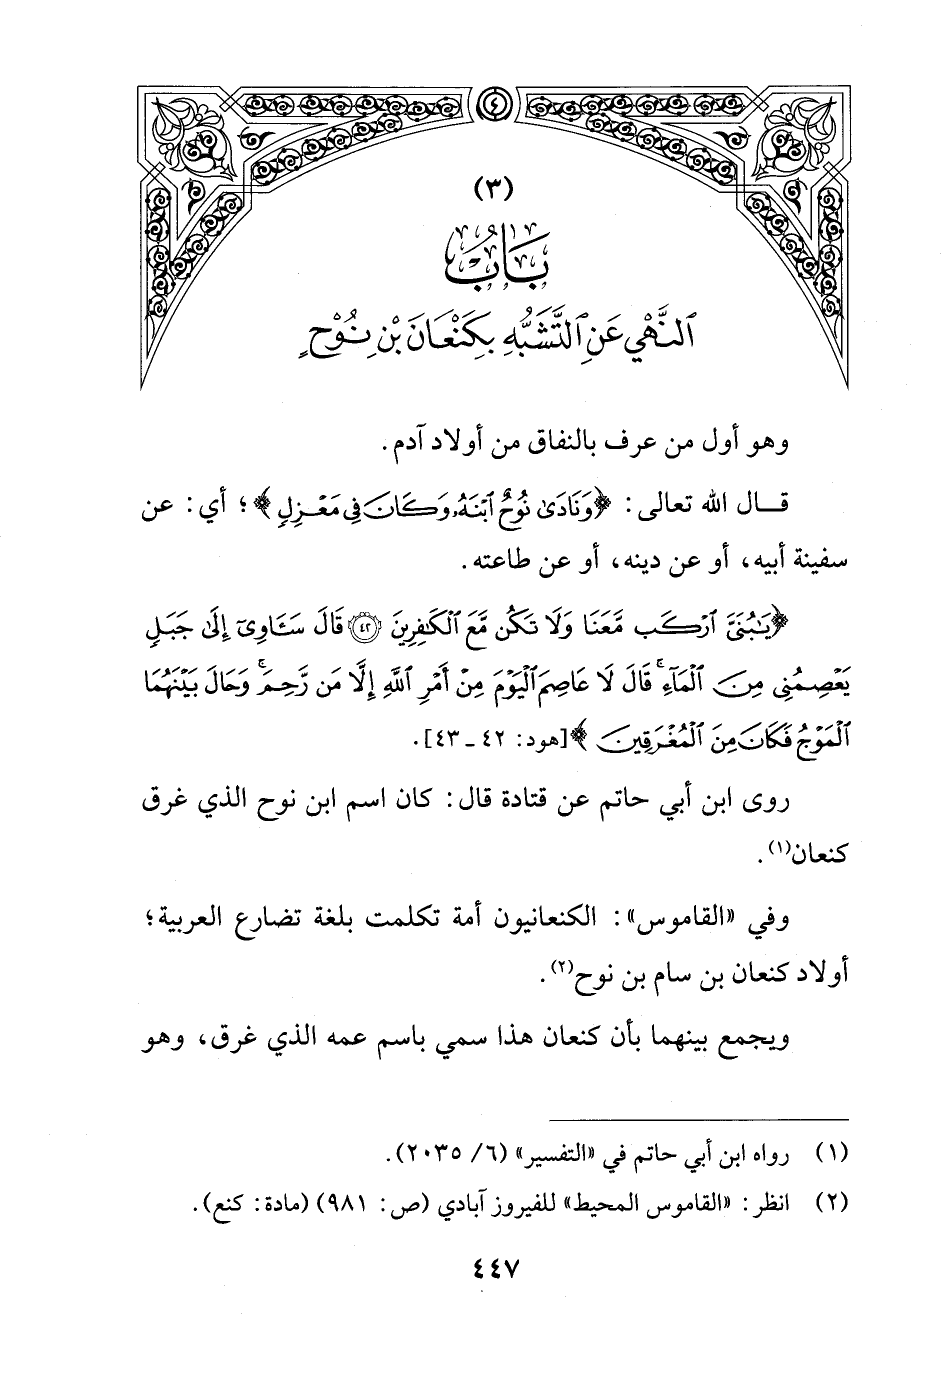 (٣)
بَابُ
النَّهْيِ عَنِ التَّشَبُّهِ بِكَنْعَانَ بْنِ نُوْحٍ
وهو أول من عرف بالنفاق من أولاد آدم.
قال الله تعالى: ﴿وَنَادَىٰ نُوحٌ ٱبْنَهُۥ وَكَانَ فِى مَعْزِلٍ﴾؛ أي: عن
سفينة أبيه، أو عن دينه، أو عن طاعته.
﴿يَٰبُنَىَّ ٱرْكَب مَّعَنَا وَلَا تَكُن مَّعَ ٱلْكَٰفِرِينَ ۝٤٢ قَالَ سَـَٔاوِىٓ إِلَىٰ جَبَلٍ
يَعْصِمُنِى مِنَ ٱلْمَآءِ ۚ قَالَ لَا عَاصِمَ ٱلْيَوْمَ مِنْ أَمْرِ ٱللَّهِ إِلَّا مَن رَّحِمَ ۚ وَحَالَ بَيْنَهُمَا
ٱلْمَوْجُ فَكَانَ مِنَ ٱلْمُغْرَقِينَ﴾ [هود: ٤٢ ـ ٤٣].
روى ابن أبي حاتم عن قتادة قال: كان اسم ابن نوح الذي غرق
كنعان(١).
وفي «القاموس»: الكنعانيون أمة تكلمت بلغة تضارع العربية؛
أولاد كنعان بن سام بن نوح(٢).
ويجمع بينهما بأن كنعان هذا سمي باسم عمه الذي غرق، وهو
(١) رواه ابن أبي حاتم في «التفسير» (٦/ ٢٠٣٥).
(٢) انظر: «القاموس المحيط» للفيروز آبادي (ص: ٩٨١) (مادة: كنع).
٤٤٧